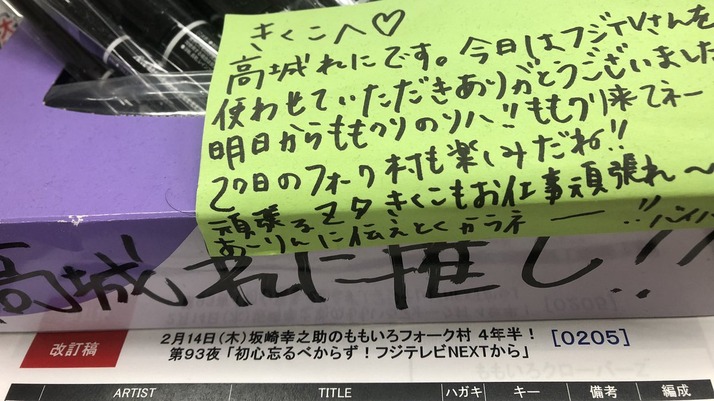 きくこへ♡
高城れにです。今日はフジTVさんを
使わせていただきありがとうございました
明日からももクリのリハ!! ももクリ来てネー
27日のフォーク村も楽しみだね!!
頑張るZタ きくこもお仕事頑張れ〜
あーりんに伝えとくからネー!! バイバイ
高城れに推し!!
改訂稿
2月14日(木)坂崎幸之助のももいろフォーク村 4年半! [0205]
第93夜「初心忘るべからず!フジテレビNEXTから」
ARTIST TITLE ハガキ キー 備考 編成